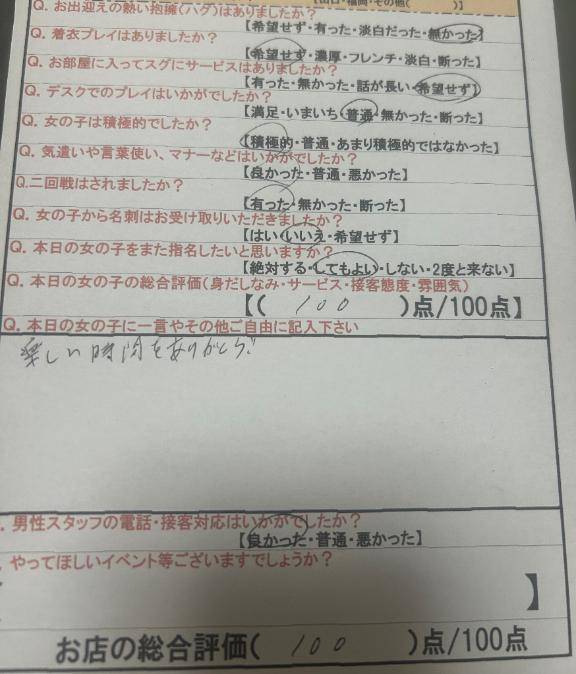 Q. お出迎えの熱い抱擁(ハグ)はありましたか？
【希望せず・有った・淡白だった・無かった】
Q. 着衣プレイはありましたか？
【希望せず・濃厚・フレンチ・淡白・断った】
Q. お部屋に入ってスグにサービスはありましたか？
【有った・無かった・話が長い・希望せず】
Q. デスクでのプレイはいかがでしたか？
【満足・いまいち・普通・無かった・断った】
Q. 女の子は積極的でしたか？
【積極的・普通・あまり積極的ではなかった】
Q. 気遣いや言葉使い、マナーなどはいかがでしたか？
【良かった・普通・悪かった】
Q.二回戦はされましたか？
【有った・無かった・断った】
Q. 女の子から名刺はお受け取りいただきましたか？
【はい・いいえ・希望せず】
Q. 本日の女の子をまた指名したいと思いますか？
【絶対する・してもよい・しない・2度と来ない】
Q. 本日の女の子の総合評価(身だしなみ・サービス・接客態度・雰囲気)
【( 100 )点/100点】
Q. 本日の女の子に一言やその他ご自由に記入下さい
楽しい時間をありがとう!
. 男性スタッフの電話・接客対応はいかがでしたか？
【良かった・普通・悪かった】
. やってほしいイベント等ございますでしょうか？
】
お店の総合評価( 100 )点/100点